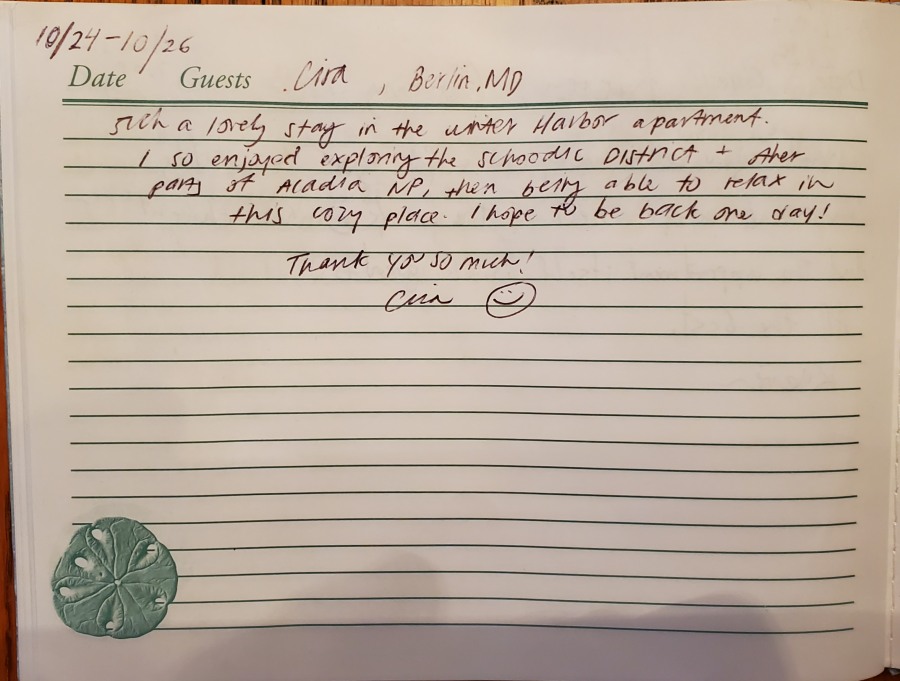 10/24-10/26
Date Guests Cira, Berlin, MD
Such a lovely stay in the winter Harbor apartment.
I so enjoyed exploring the Schoodic District + other
parts of Acadia NP, then being able to relax in
this cozy place. I hope to be back one day!
Thank you so much!
Cira